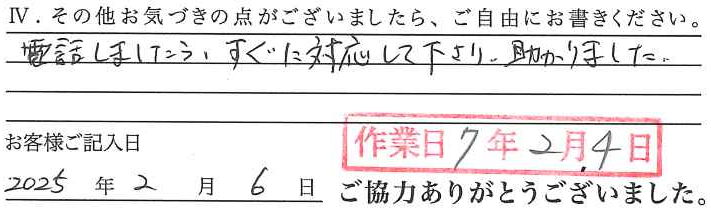 Ⅳ．その他お気づきの点がございましたら、ご自由にお書きください。
電話しましたら、すぐに対応して下さり、助かりました。
お客様ご記入日
作業日 7年2月4日
2025年2月6日
ご協力ありがとうございました。